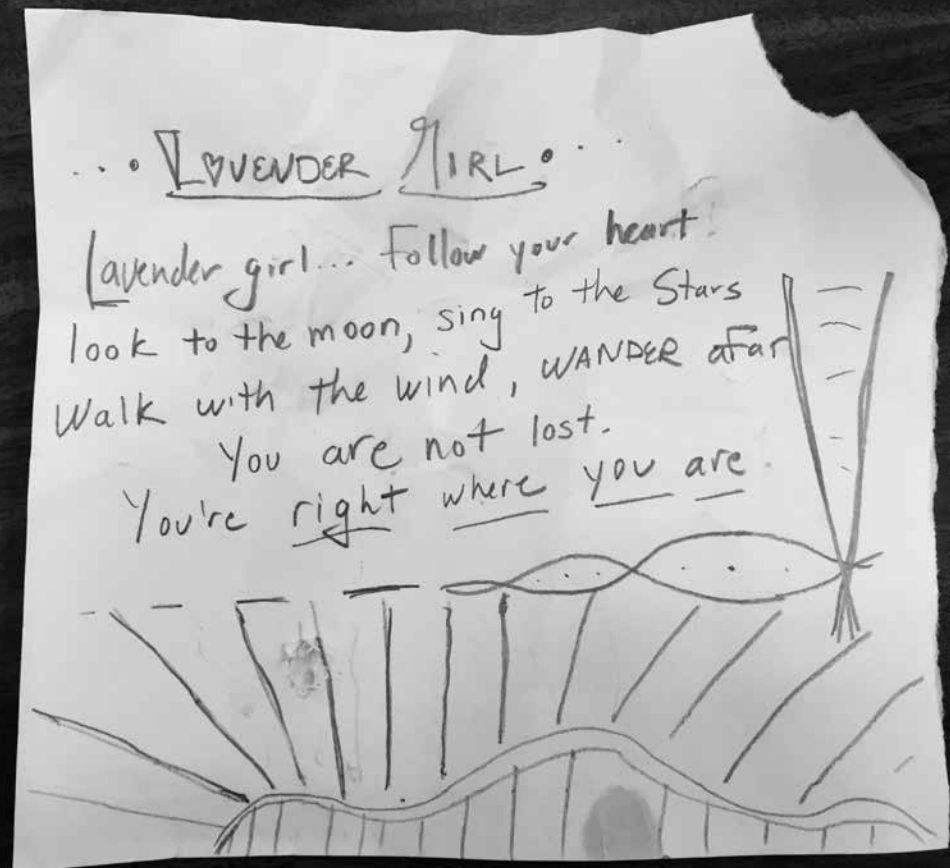 ... L♡VENDER GIRL ...
Lavender girl... Follow your heart!
look to the moon, sing to the Stars
Walk with the wind, WANDER aFar
You are not lost.
You're right where you are.